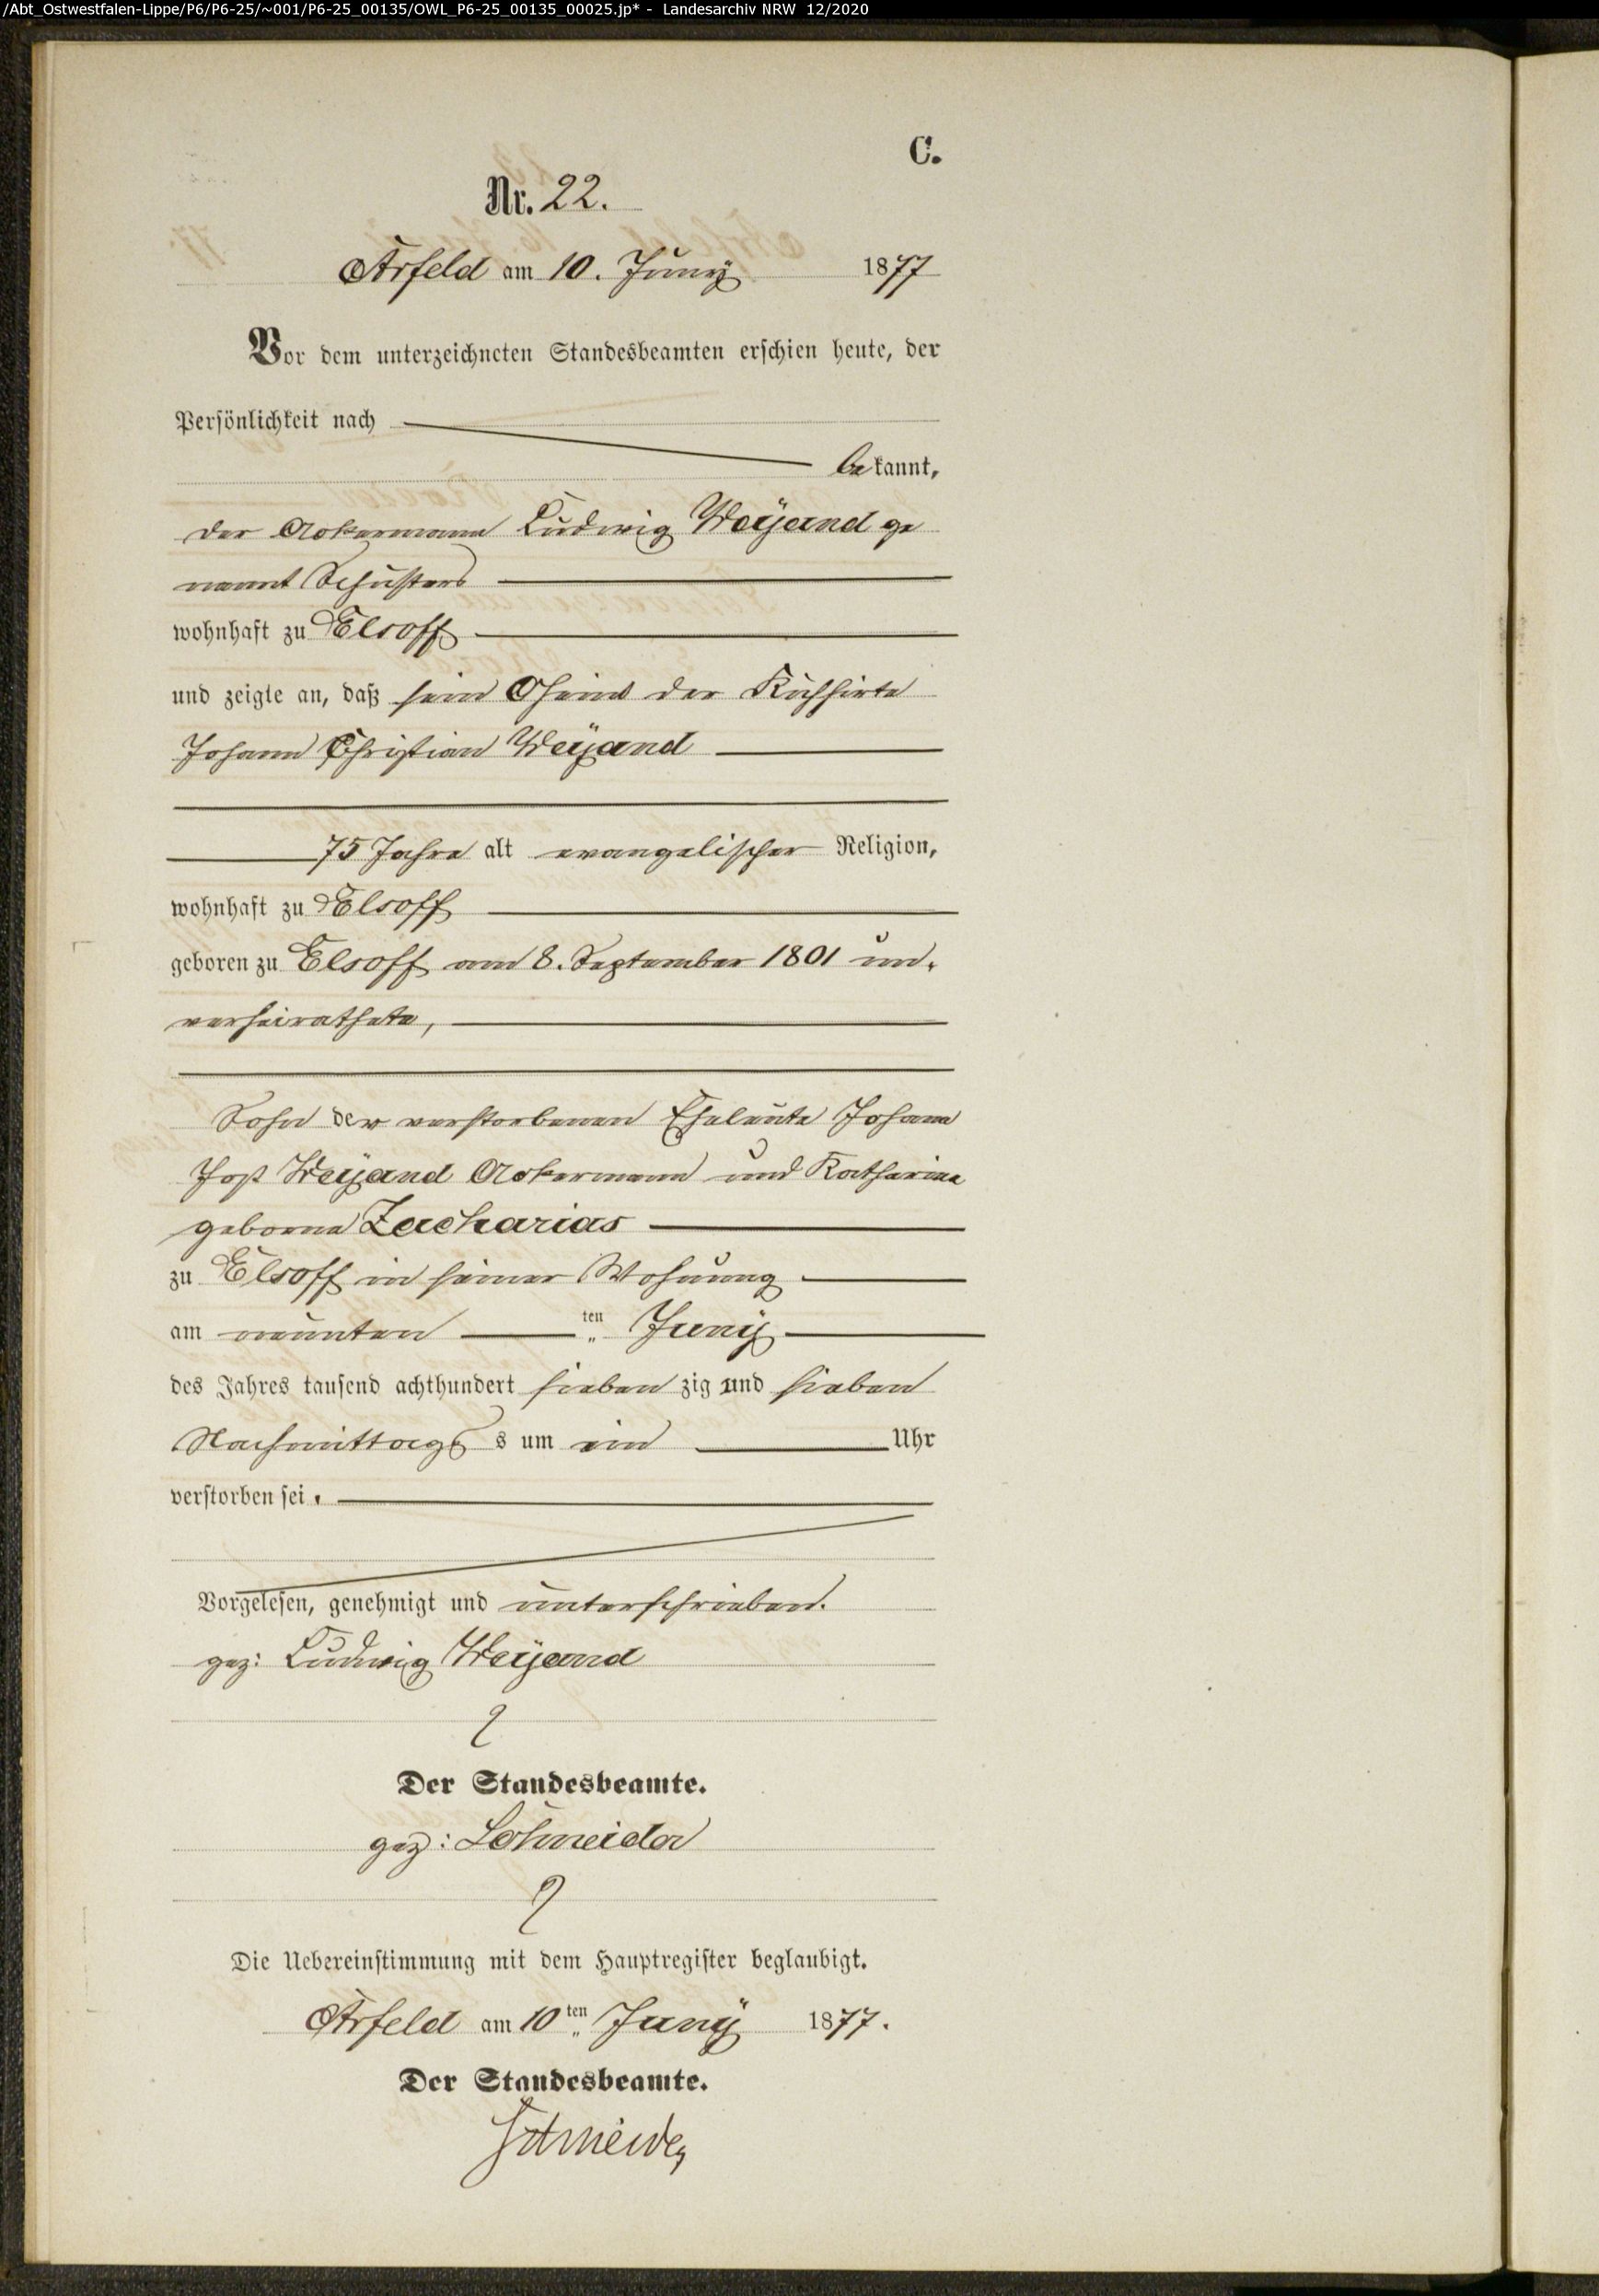 /Abt_Ostwestfalen-Lippe/P6/P6-25/~001/P6-25_00135/OWL_P6-25_00135_00025.jp* - Landesarchiv NRW 12/2020
C.
Nr. 22.
Arfeld am 10. Juny 1877
Vor dem unterzeichneten Standesbeamten erschien heute, der
Persönlichkeit nach
bekannt,
der Ackermann Ludwig Weÿand ge
nannt Schusters
wohnhaft zu Elsoff
und zeigte an, daß sein Oheim der Kuhhirte
Johann Christian Weÿand
75 Jahre alt evangelischer Religion,
wohnhaft zu Elsoff
geboren zu Elsoff am 8. September 1801 un-
verheirathete,
Sohn der verstorbenen Eheleute Johann
Jost Weÿand Ackermann und Katharina
geborne Zacharias
zu Elsoff in seiner Wohnung
am neunten ten Juny
des Jahres tausend achthundert sieben zig und sieben
Nachmittags s um ein Uhr
verstorben sei.
Vorgelesen, genehmigt und unterschrieben.
gez: Ludwig Weÿand
Der Standesbeamte.
gez: Schneider
Die Uebereinstimmung mit dem Hauptregister beglaubigt.
Arfeld am 10ten Juny 1877.
Der Standesbeamte.
Schneider